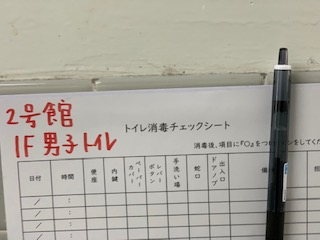 2号館
1F 男子トイレ
トイレ消毒チェックシート
消毒後、項目に『○』をつ
してくだ
日付 時間 便座 内鍵 ペーパーカバー レバーボタン 手洗い場 蛇口 出入口ドアノブ 備
/ : /
/ : /